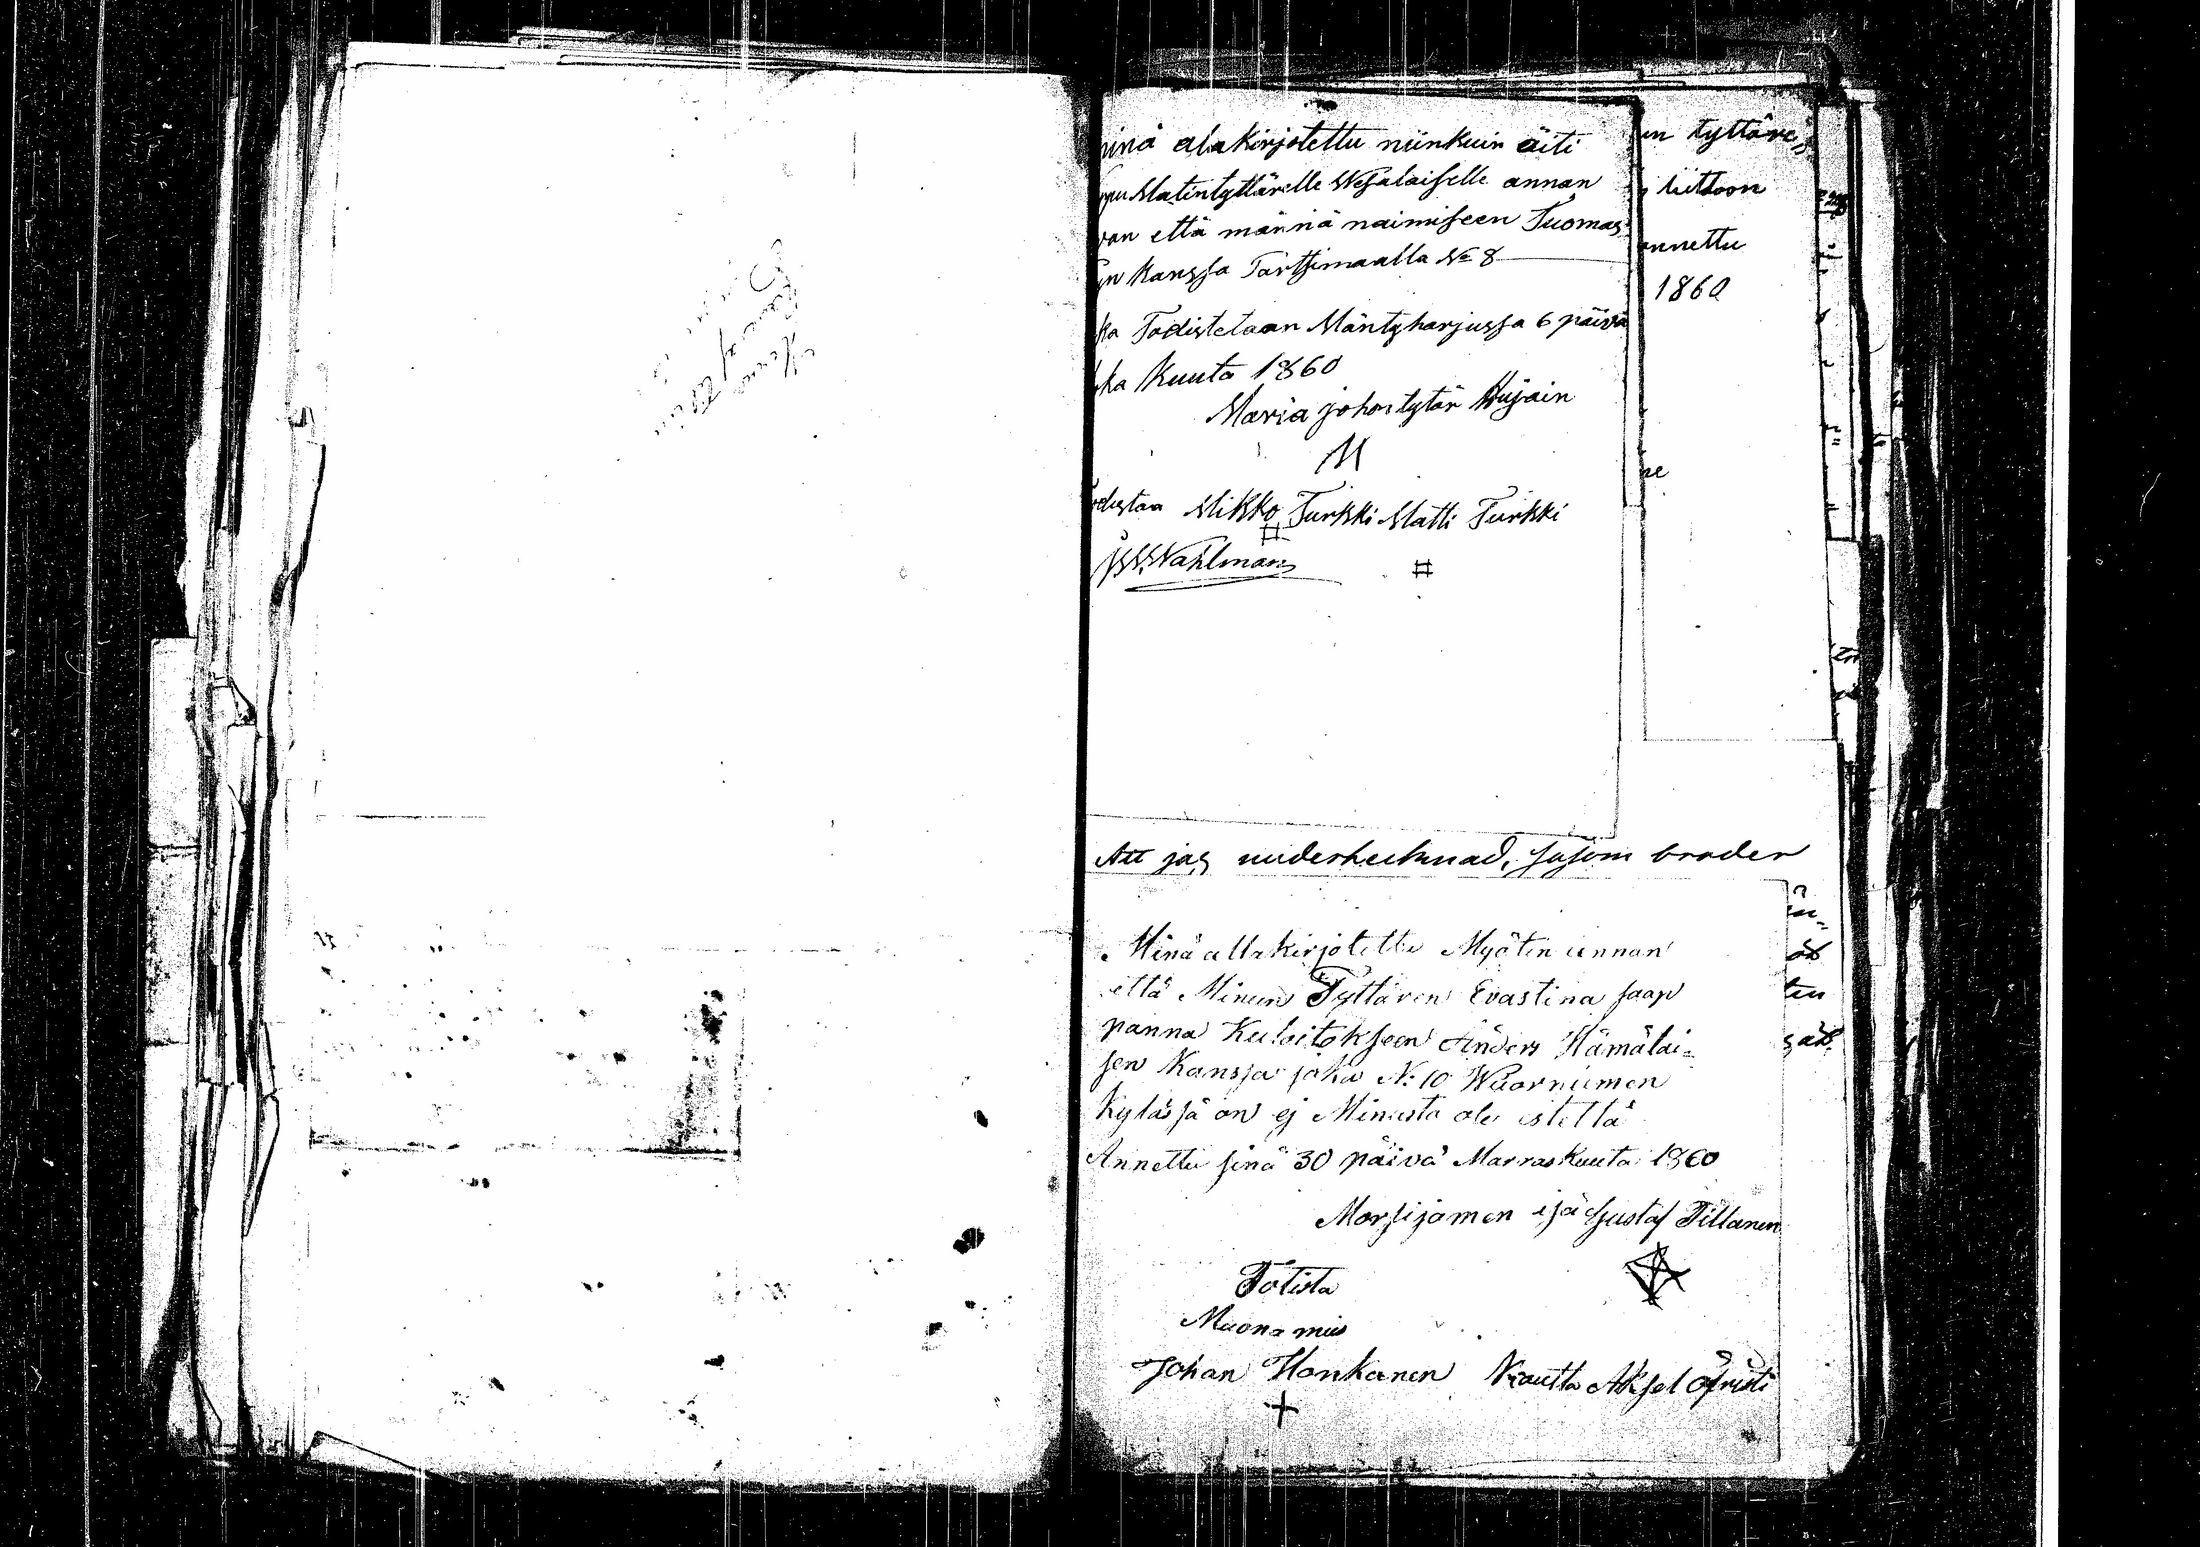 minä alakirjotettu niinkuin äiti
Matintyttärelle Wesalaiselle annan
van että männä naimiseen Tuomas
kanssa Tarttimaalla No 8
ka Todistetaan Mäntyharjussa 6 päivä
ka Kuuta 1860
Maria johontytär Hujain
M
odistaa Mikko Turkki Matti Turkki
Wahlman
un tyttäre
littoon
annettu
1860
Att jag undertecknad, såsom broder
Minä allakirjotettu Myötin annan
että Minun Tyttären Evastina saap
panna Kuloitokseen Anders Hämäläi-
sen Kanssa joka No 10 Wuorniemen
Kylässä on ej Minusta ole estettä
Annettu sinä 30 päivä Marraskuuta 1860
Morsijamen isä Gustaf Tillanen
Totista
Muona mies
Johan Honkanen Nautta Aksel
+